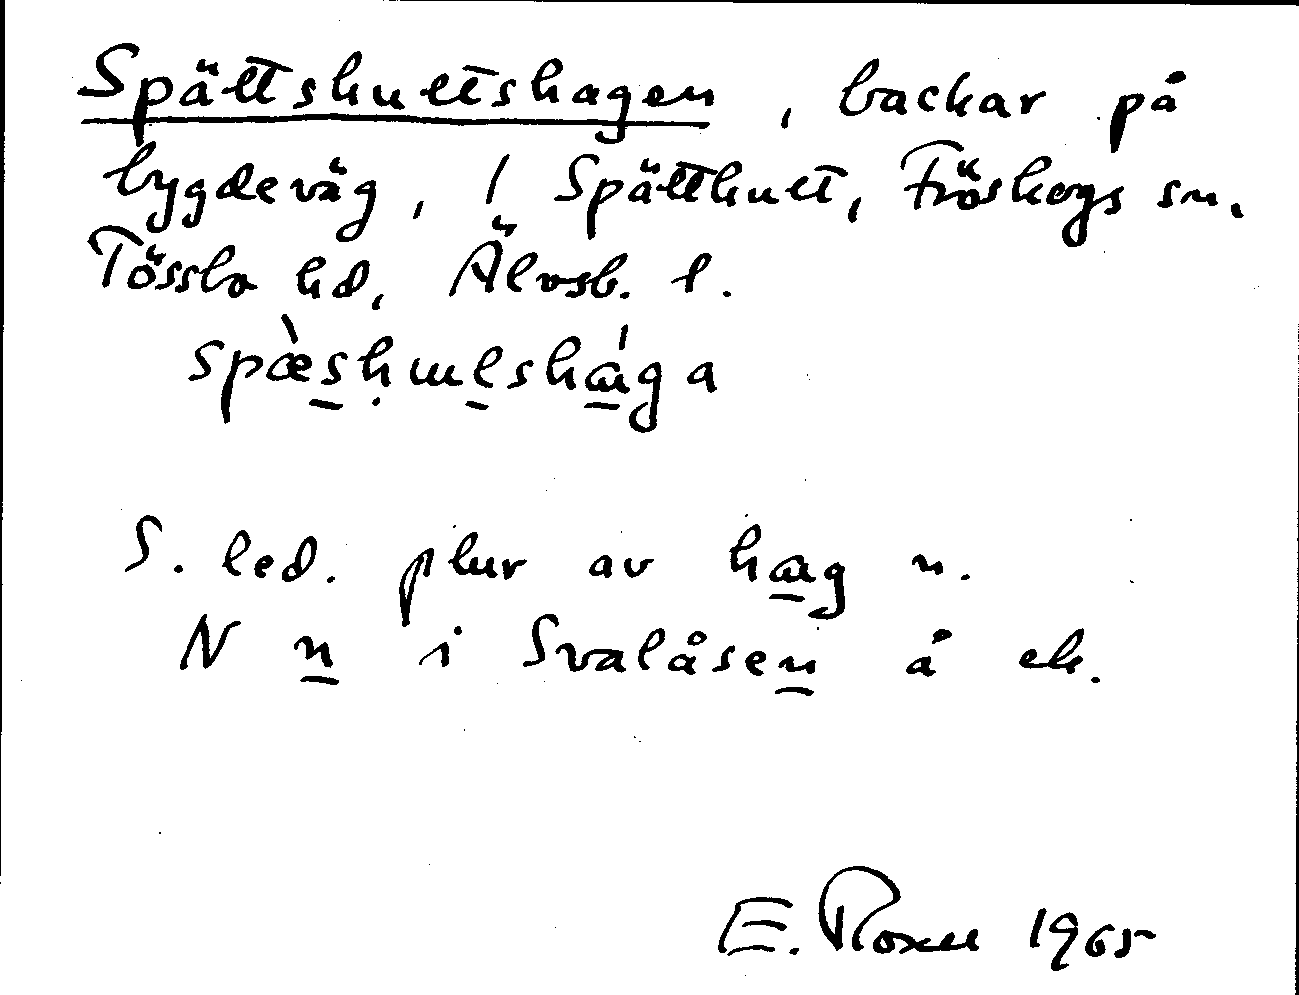 Spättshultshagen, backar på
bygdeväg, 1 Spätthult, Fröskogs sn.
Tössbo hd, Älvsb. l.
S. led. plur av hag n.
N n i Svalåsen å ek.
E. Roxell 1965